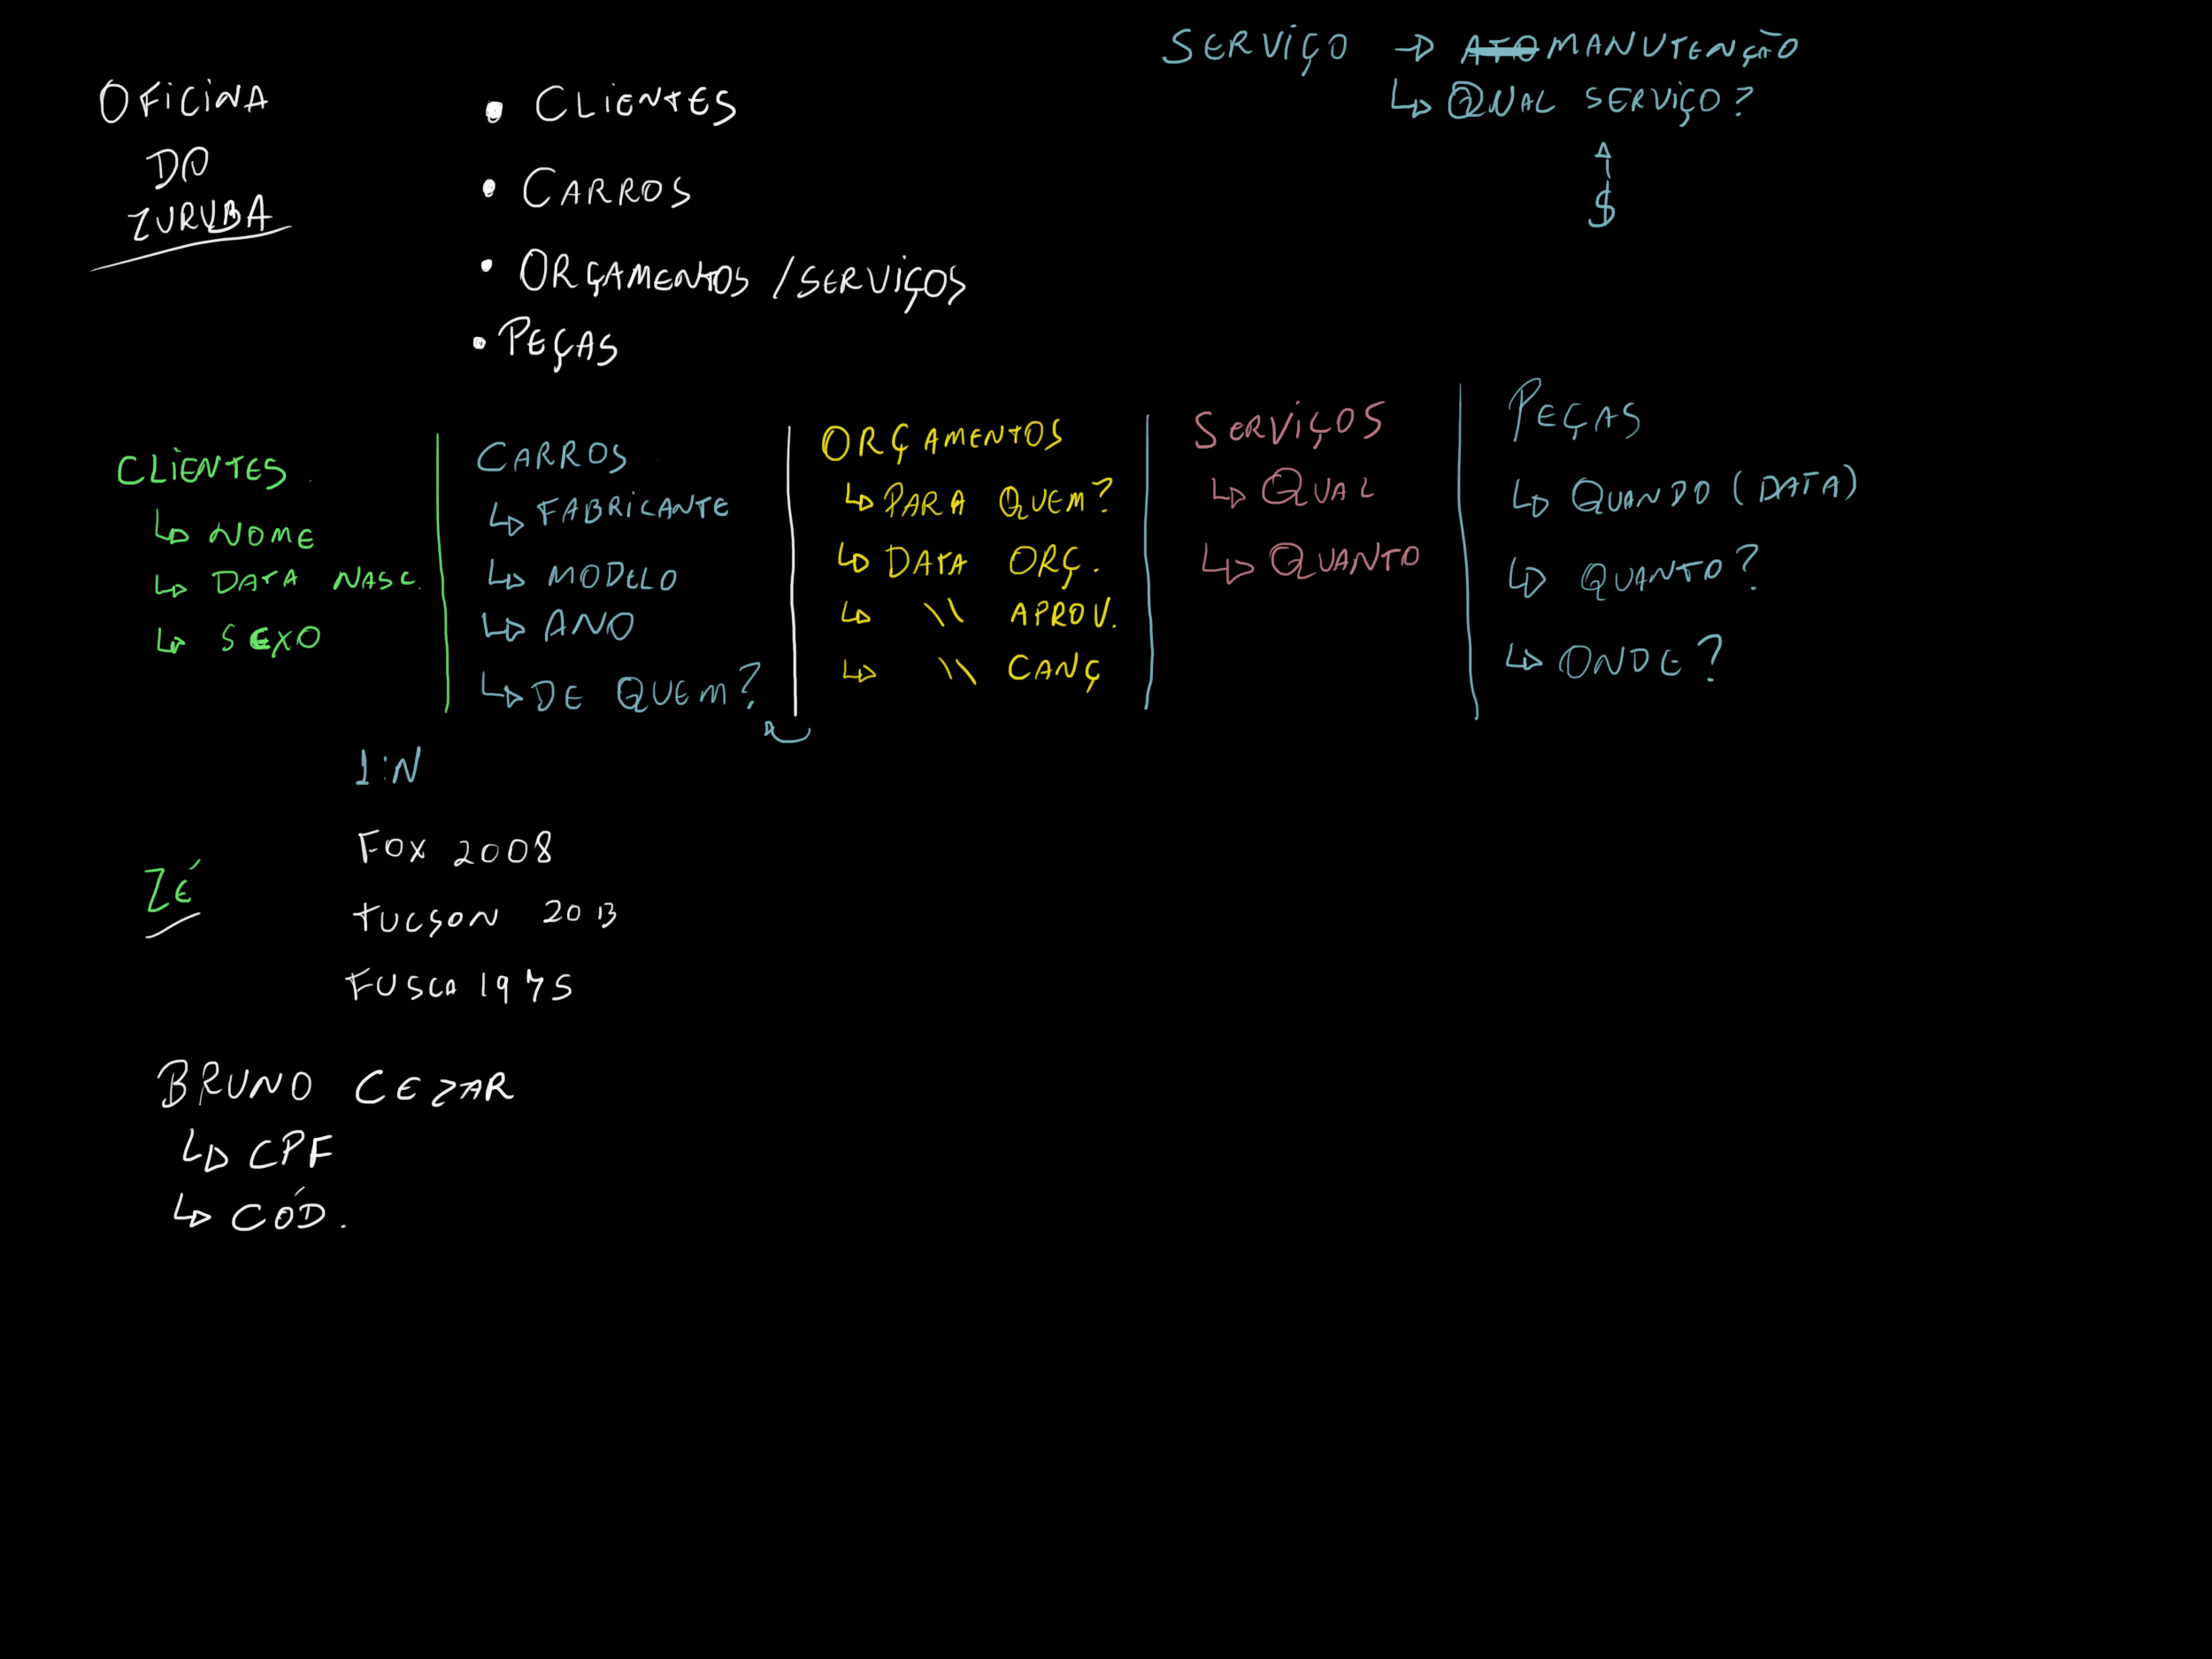 OFICINA
DO
ZURUBA
• CLIENTES
• CARROS
• ORÇAMENTOS / SERVIÇOS
• PEÇAS
SERVIÇO → MANUTENÇÃO
↳ QUAL SERVIÇO?
↑
$
CLIENTES
↳ NOME
↳ DATA NASC.
↳ SEXO
CARROS
↳ FABRICANTE
↳ MODELO
↳ ANO
↳ DE QUEM?
ORÇAMENTOS
↳ PARA QUEM?
↳ DATA ORÇ.
↳ \\ APROV.
↳ \\ CANÇ
SERVIÇOS
↳ QUAL
↳ QUANTO
PEÇAS
↳ QUANDO (DATA)
↳ QUANTO?
↳ ONDE?
1:N
ZÉ
FOX 2008
TUCSON 2013
FUSCA 1975
BRUNO CEZAR
↳ CPF
↳ CÓD.